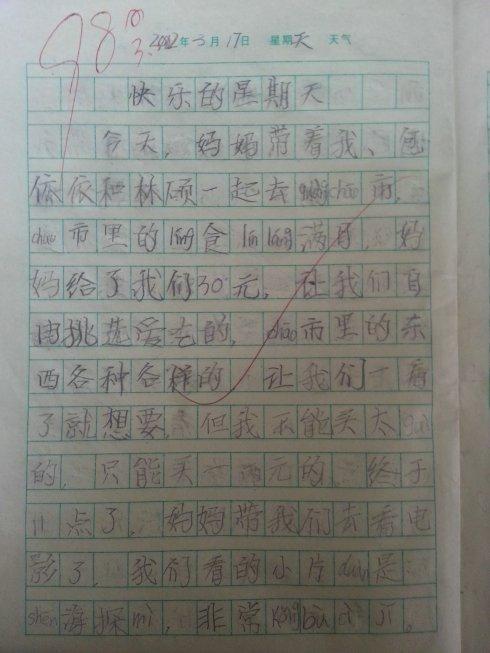 98
2012年3月17日 星期天 天气
快乐的星期天
今天，妈妈带着我、包
依依和林硕一起去guàng chāo市。
chāo市里的líng食lín láng满目，妈
妈给了我们30元，让我们自
由挑选爱吃的，chāo市里的东
西各种各样的，让我们一看
了就想要，但我不能买太guì
的，只能买一两元的。终于
11点了，妈妈带我们去看电
影了，我们看的小片duàn是
shēn海探mì，非常kǒng bù cì jī。